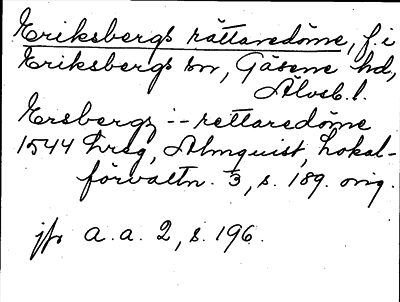 Eriksbergs rättaredöme, f. i
Eriksbergs sn, Gäsene hd,
Älvsb. l.
Ersbergz -- rettaredöme
1544 hreg, Almquist, Lokal-
förvaltn. 3, s. 189. orig.
jfr a. a. 2, s. 196.